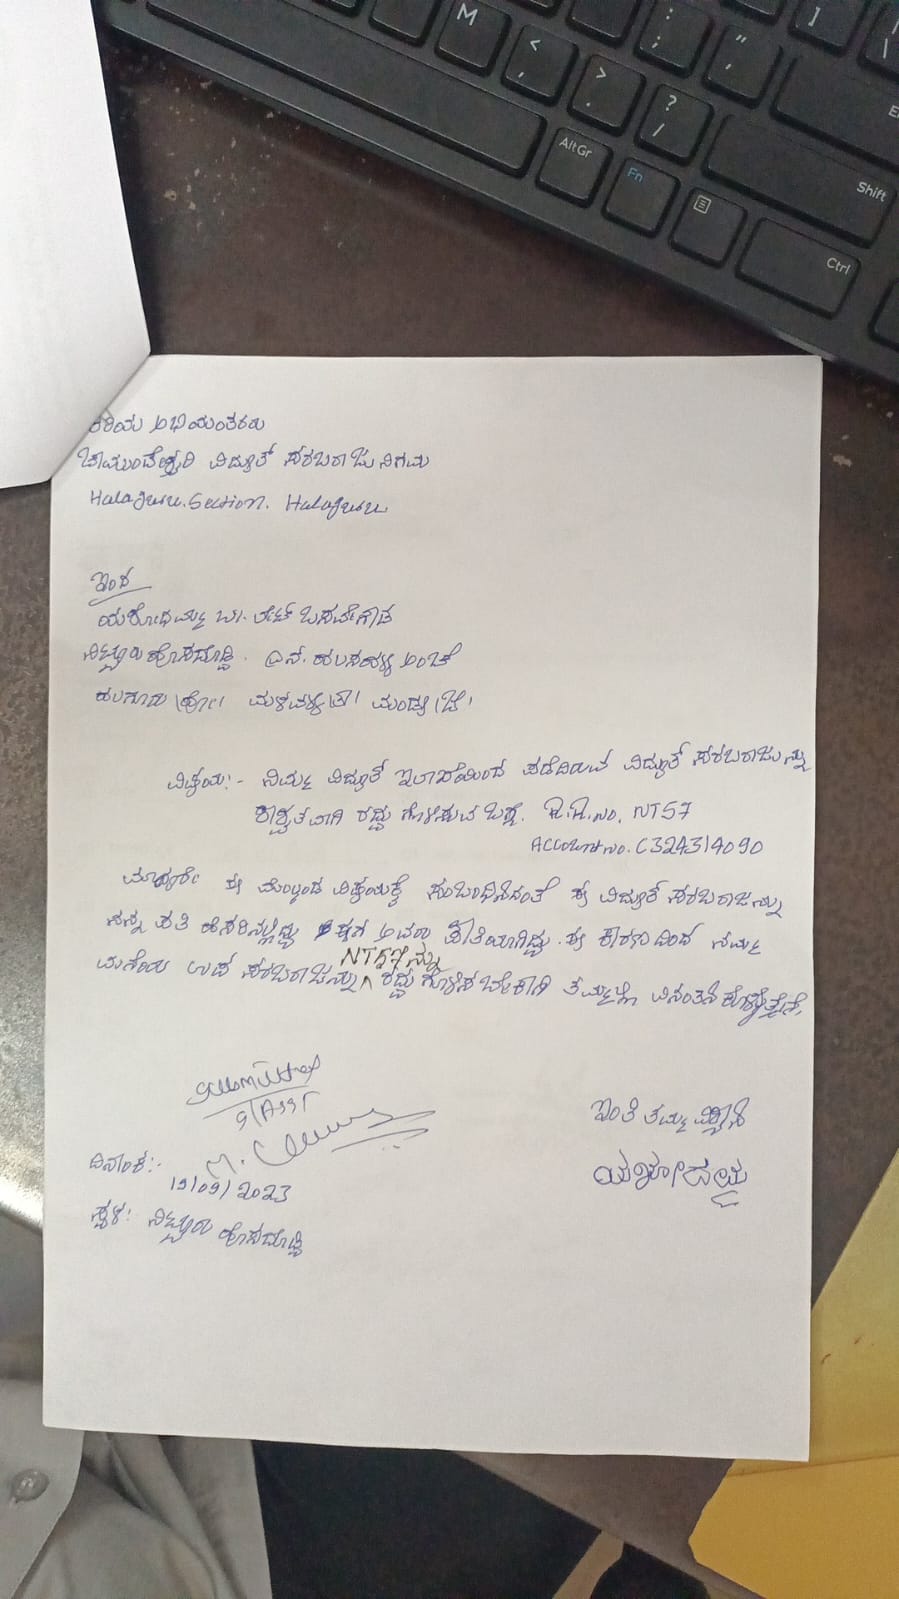 M
<
,
>
.
?
/
:
;
"
'
]
\
AltGr
Fn
Shift
Ctrl
ಕಿರಿಯ ಅಭಿಯಂತರರು
ಚಾಮುಂಡೇಶ್ವರಿ ವಿದ್ಯುತ್ ಸರಬರಾಜು ನಿಗಮ
Halaguru. Section. Halaguru
ಇಂದ
ಯಶೋಧಮ್ಮ ಬಿನ್ ಲೇಟ್ ಬಸವೇಗೌಡ
ನಿಟ್ಟೂರು ಹೊಸದೊಡ್ಡಿ. ಎನ್. ಹಲಸಹಳ್ಳಿ ಅಂಚೆ
ಹಲಗೂರು ಹೋ। ಮಳವಳ್ಳಿ ತಾ। ಮಂಡ್ಯ ಜಿ।
ವಿಷಯ:- ನಿಮ್ಮ ವಿದ್ಯುತ್ ಇಲಾಖೆಯಿಂದ ಪಡೆದಿರುವ ವಿದ್ಯುತ್ ಸರಬರಾಜುನ್ನು
ಶಾಶ್ವತವಾಗಿ ರದ್ದು ಗೊಳಿಸುವ ಬಗ್ಗೆ. R.R.No. NT57
Account no. C324314090
ಮಾನ್ಯರೇ ಈ ಮೇಲ್ಕಂಡ ವಿಷಯಕ್ಕೆ ಸಂಬಂಧಿಸಿದಂತೆ ಈ ವಿದ್ಯುತ್ ಸರಬರಾಜನ್ನು
ನನ್ನ ಪತಿ ಹೆಸರಿನಲ್ಲಿದ್ದು ಈಗ ಅವರು ತೀರಿಹೋಗಿದ್ದು. ಈ ಕಾರಣದಿಂದ ನಮ್ಮ
NT57ನ್ನು
ಮನೆಯ ಸರಬರಾಜನ್ನು ರದ್ದು ಗೊಳಿಸಬೇಕಾಗಿ ತಮ್ಮಲ್ಲಿ ವಿನಂತಿಸಿಕೊಳ್ಳುತ್ತೇನೆ.
Submitted
ಇಂತಿ ತಮ್ಮ ವಿಶ್ವಾಸಿ
ಯಶೋದಮ್ಮ
ದಿನಾಂಕ:-
19/09/2023
ಸ್ಥಳ: ನಿಟ್ಟೂರು ಹೊಸದೊಡ್ಡಿ